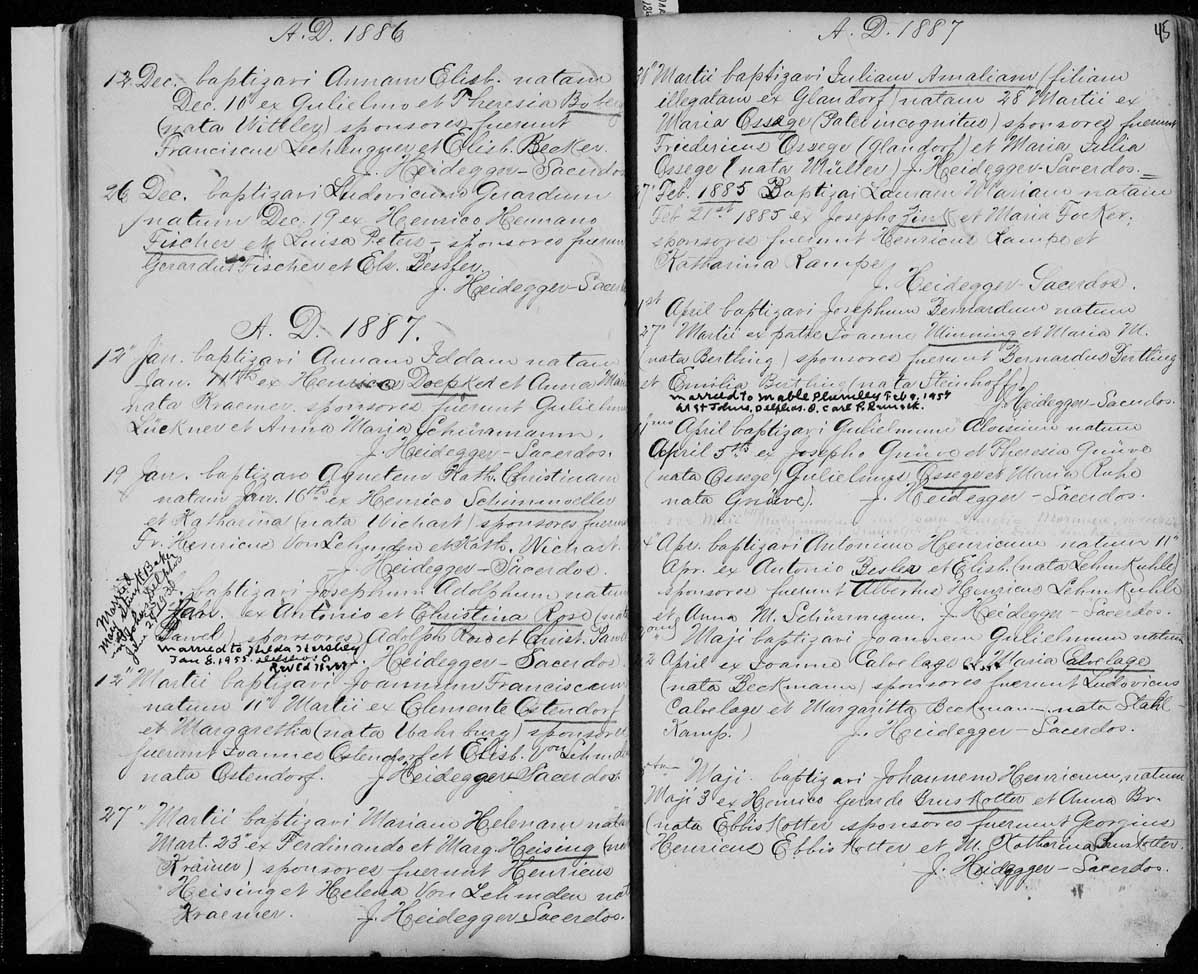 A. D. 1886
12 Dec. baptizavi Annam Elisb. natam
Dec. 10" ex Gulielmo et Theresia Boberg
(nata Wittley) sponsores fuerunt
Franciscus et Elisb. Becker.
J. Heidegger - Sacerdos
26 Dec. baptizavi Ludovicum Gerardum
natum Dec. 19 ex Henrico Hermano
Fischer et Luisa Peters, sponsores fuerunt
Gerardus Fischer et Els. Bessfer.
J. Heidegger - Sacerdos
A. D. 1887.
12" Jan. baptizavi Annam Iddam natam
Jan. 11th ex Henrico Doepker et Anna Maria
nata Kraemer. sponsores fuerunt Gulielmus
Lückner et Anna Maria Schürmann.
J. Heidegger - Sacerdos.
19 Jan. baptizavi Agnetem Kath. Christinam
natam Jan. 16th ex Henrico Schimmoeller
et Katharina (nata Wichart) sponsores fuerunt
Fr. Henricus Von Lehmden et Kath. Wichart.
J. Heidegger - Sacerdos.
Married
May
St Johns
baptizavi Josephum Adolphum natum
Jan. ex Antonio et Christina Rose (nata
Sanel) sponsores Adolph et Christ.
Married to Hilda Hershey
Jan 8. 1955
J. Heidegger - Sacerdos.
12" Martii baptizavi Joannum Franciscum
natum 11" Martii ex Clemente Ostendorf
et Margaretha (nata Wahrburg) sponsores
fuerunt Joannes Ostendorf et Elisb. Von Lehmden
nata Ostendorf. J. Heidegger - Sacerdos.
27" Martii baptizavi Mariam Helenam natam
Mart. 23" ex Ferdinando et Marg. Heising (nata
Krämer) sponsores fuerunt Henricus
Heising et Helena Von Lehmden nata
Kraemer. J. Heidegger - Sacerdos.
45
A. D. 1887
Martii baptizavi Juliam Amaliam (filiam
illegalam ex Glandorf) natam 28" Martii ex
Maria Ossege (Pater incognitus) sponsores fuerunt
Friedericus Ossege (Glandorf) et Maria
Ossege (nata Müller) J. Heidegger - Sacerdos.
Feb. 1885 Baptizavi Mariam natam
Feb 21st 1885 ex Josepho Zink et Maria Focker,
sponsores fuerunt Henricus Kampe et
Katharina Kampe
J. Heidegger - Sacerdos.
1st April baptizavi Josephum Bernardum natum
27" Martii ex patre Joanne Minning et Maria M.
(nata Bertling) sponsores fuerunt Bernardus Bertling
et Emilia Bertling (nata Steinhoff)
J. Heidegger - Sacerdos.
Married to Mable Plumlley Feb 9, 1957
at St Johns, Delphos. O. Carl
April baptizavi Gulielmum Aloisium natum
April 5th ex Josepho Grüwe et Theresia Grüwe
(nata Ossege) Gulielmus Ossege et Maria
nata Grüwe). J. Heidegger - Sacerdos.
Apr. baptizavi Antonium Henricum natum 11"
Apr. ex Antonio Besler et Elisb. (nata Lehmkuhle)
sponsores fuerunt Albertus Henricus Lehmkuhle
et Anna M. Schürmann. J. Heidegger - Sacerdos.
Maji baptizavi Joannem Gulielmum natum
April ex Joanne Calvelage et Maria Calvelage
(nata Beckmann) sponsores fuerunt Ludovicus
Calvelage et Margaritta Beckmann nata Stahl-
Kamp.) J. Heidegger - Sacerdos.
Maji baptizavi Johannem Henricum, natum
Maji 3 ex Henrico Gerardo Bruskotter et Anna Br.
(nata Ebbiskotter sponsores fuerunt Georgius
Henricus Ebbiskotter et M. Katharina Bruskotter.
J. Heidegger - Sacerdos.